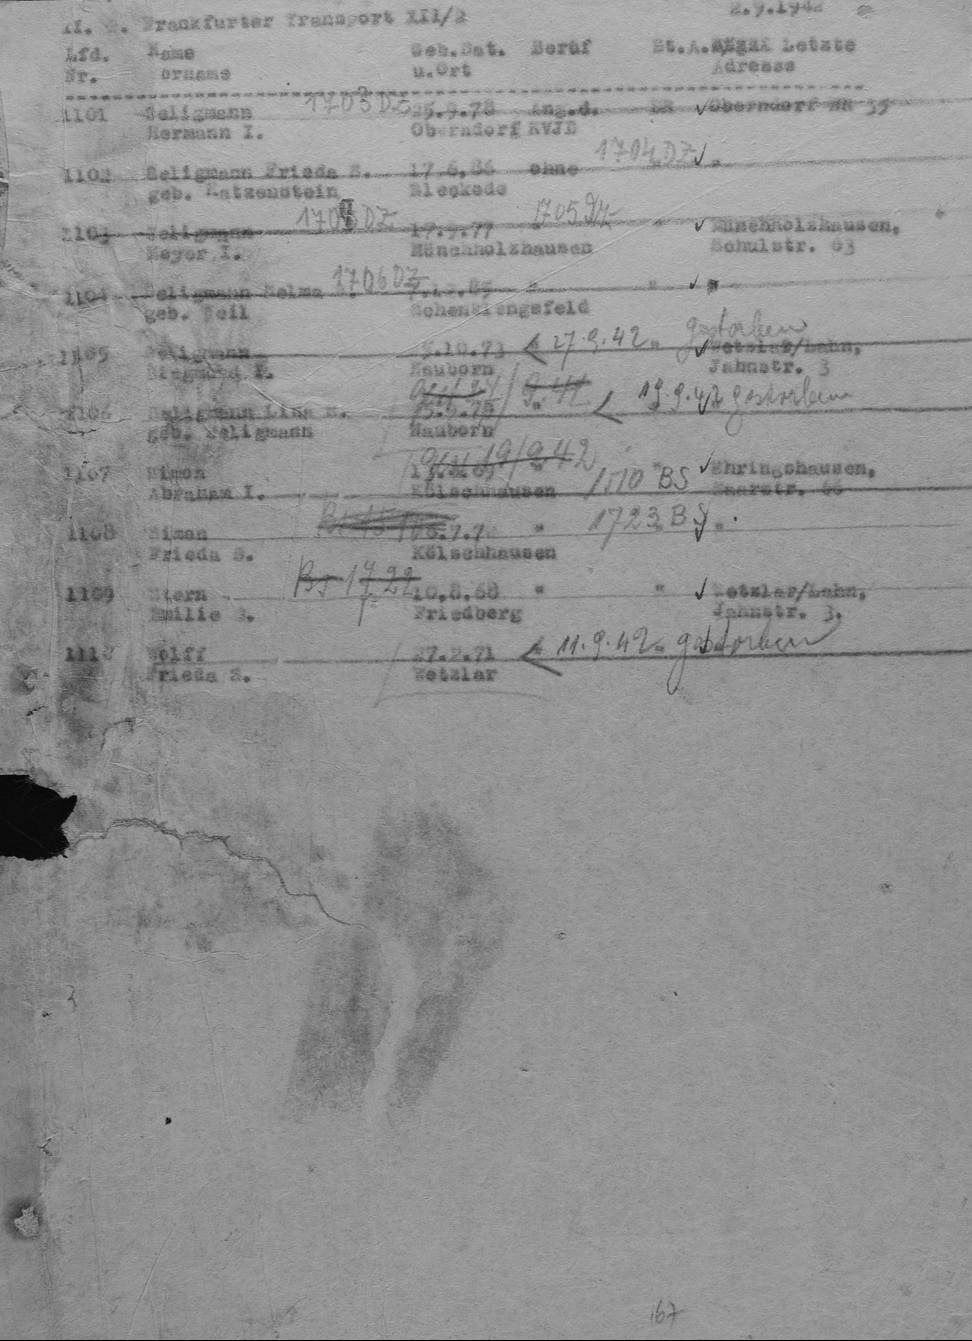 Frankfurter Transport XII/2 2.9.1942
Lfd. Name Geb.Dat. Beruf St.A. Letzte
Nr. Vorname u.Ort Adresse
1101 Seligmann 1703 DZ 25.9.78 Ang.d. DR ✓ Oberndorf HN 35
Hermann I. Oberndorf KVJD
1102 Seligmann Frieda S. 17.6.86 ohne 1704 DZ ✓ "
geb. Katzenstein Bleckede
1103 Seligmann DZ 17.9.77 1705 DZ " ✓ Münchholzhausen,
Meyer I. Münchholzhausen Schulstr. 63
1104 Seligmann Selma 1706 DZ " " ✓ "
geb. Weil Schenklengsfeld
1105 Seligmann .10.73 27.9.42 " gestorben ✓ Wetzlar/Lahn,
Siegmund I. Nauborn Jahnstr. 3
1106 Seligmann Lina S. 19.9.42 gestorben
geb. Seligmann Nauborn
1107 Simon 19/9.42 " ✓ Ehringshausen,
Abraham I. Kölschhausen BS
1108 Simon " 1723 BS "
Frieda S. Kölschhausen
1109 Stern BS 1722 10.8.68 " " ✓ Wetzlar/Lahn,
Emilie S. Friedberg Jahnstr. 3.
1110 Wolff 27.2.71 " 11.9.42 " gestorben
Frieda S. Wetzlar
167